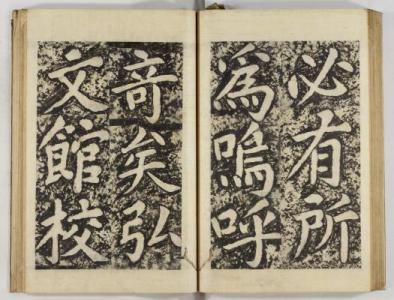 必有所
為嗚呼
奇矣弘
文館校